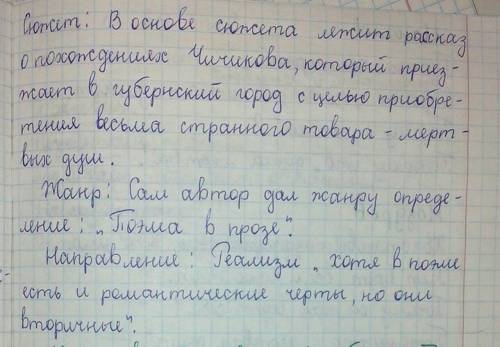 Сюжет: В основе сюжета лежит рассказ
о похождениях Чичикова, который приез-
жает в губернский город с целью приобре-
тения весьма странного товара - мерт-
вых душ.
Жанр: Сам автор дал жанру опреде-
ление: „Поэма в прозе".
Направление: Реализм „хотя в поэме
есть и романтические черты, но они
вторичные".